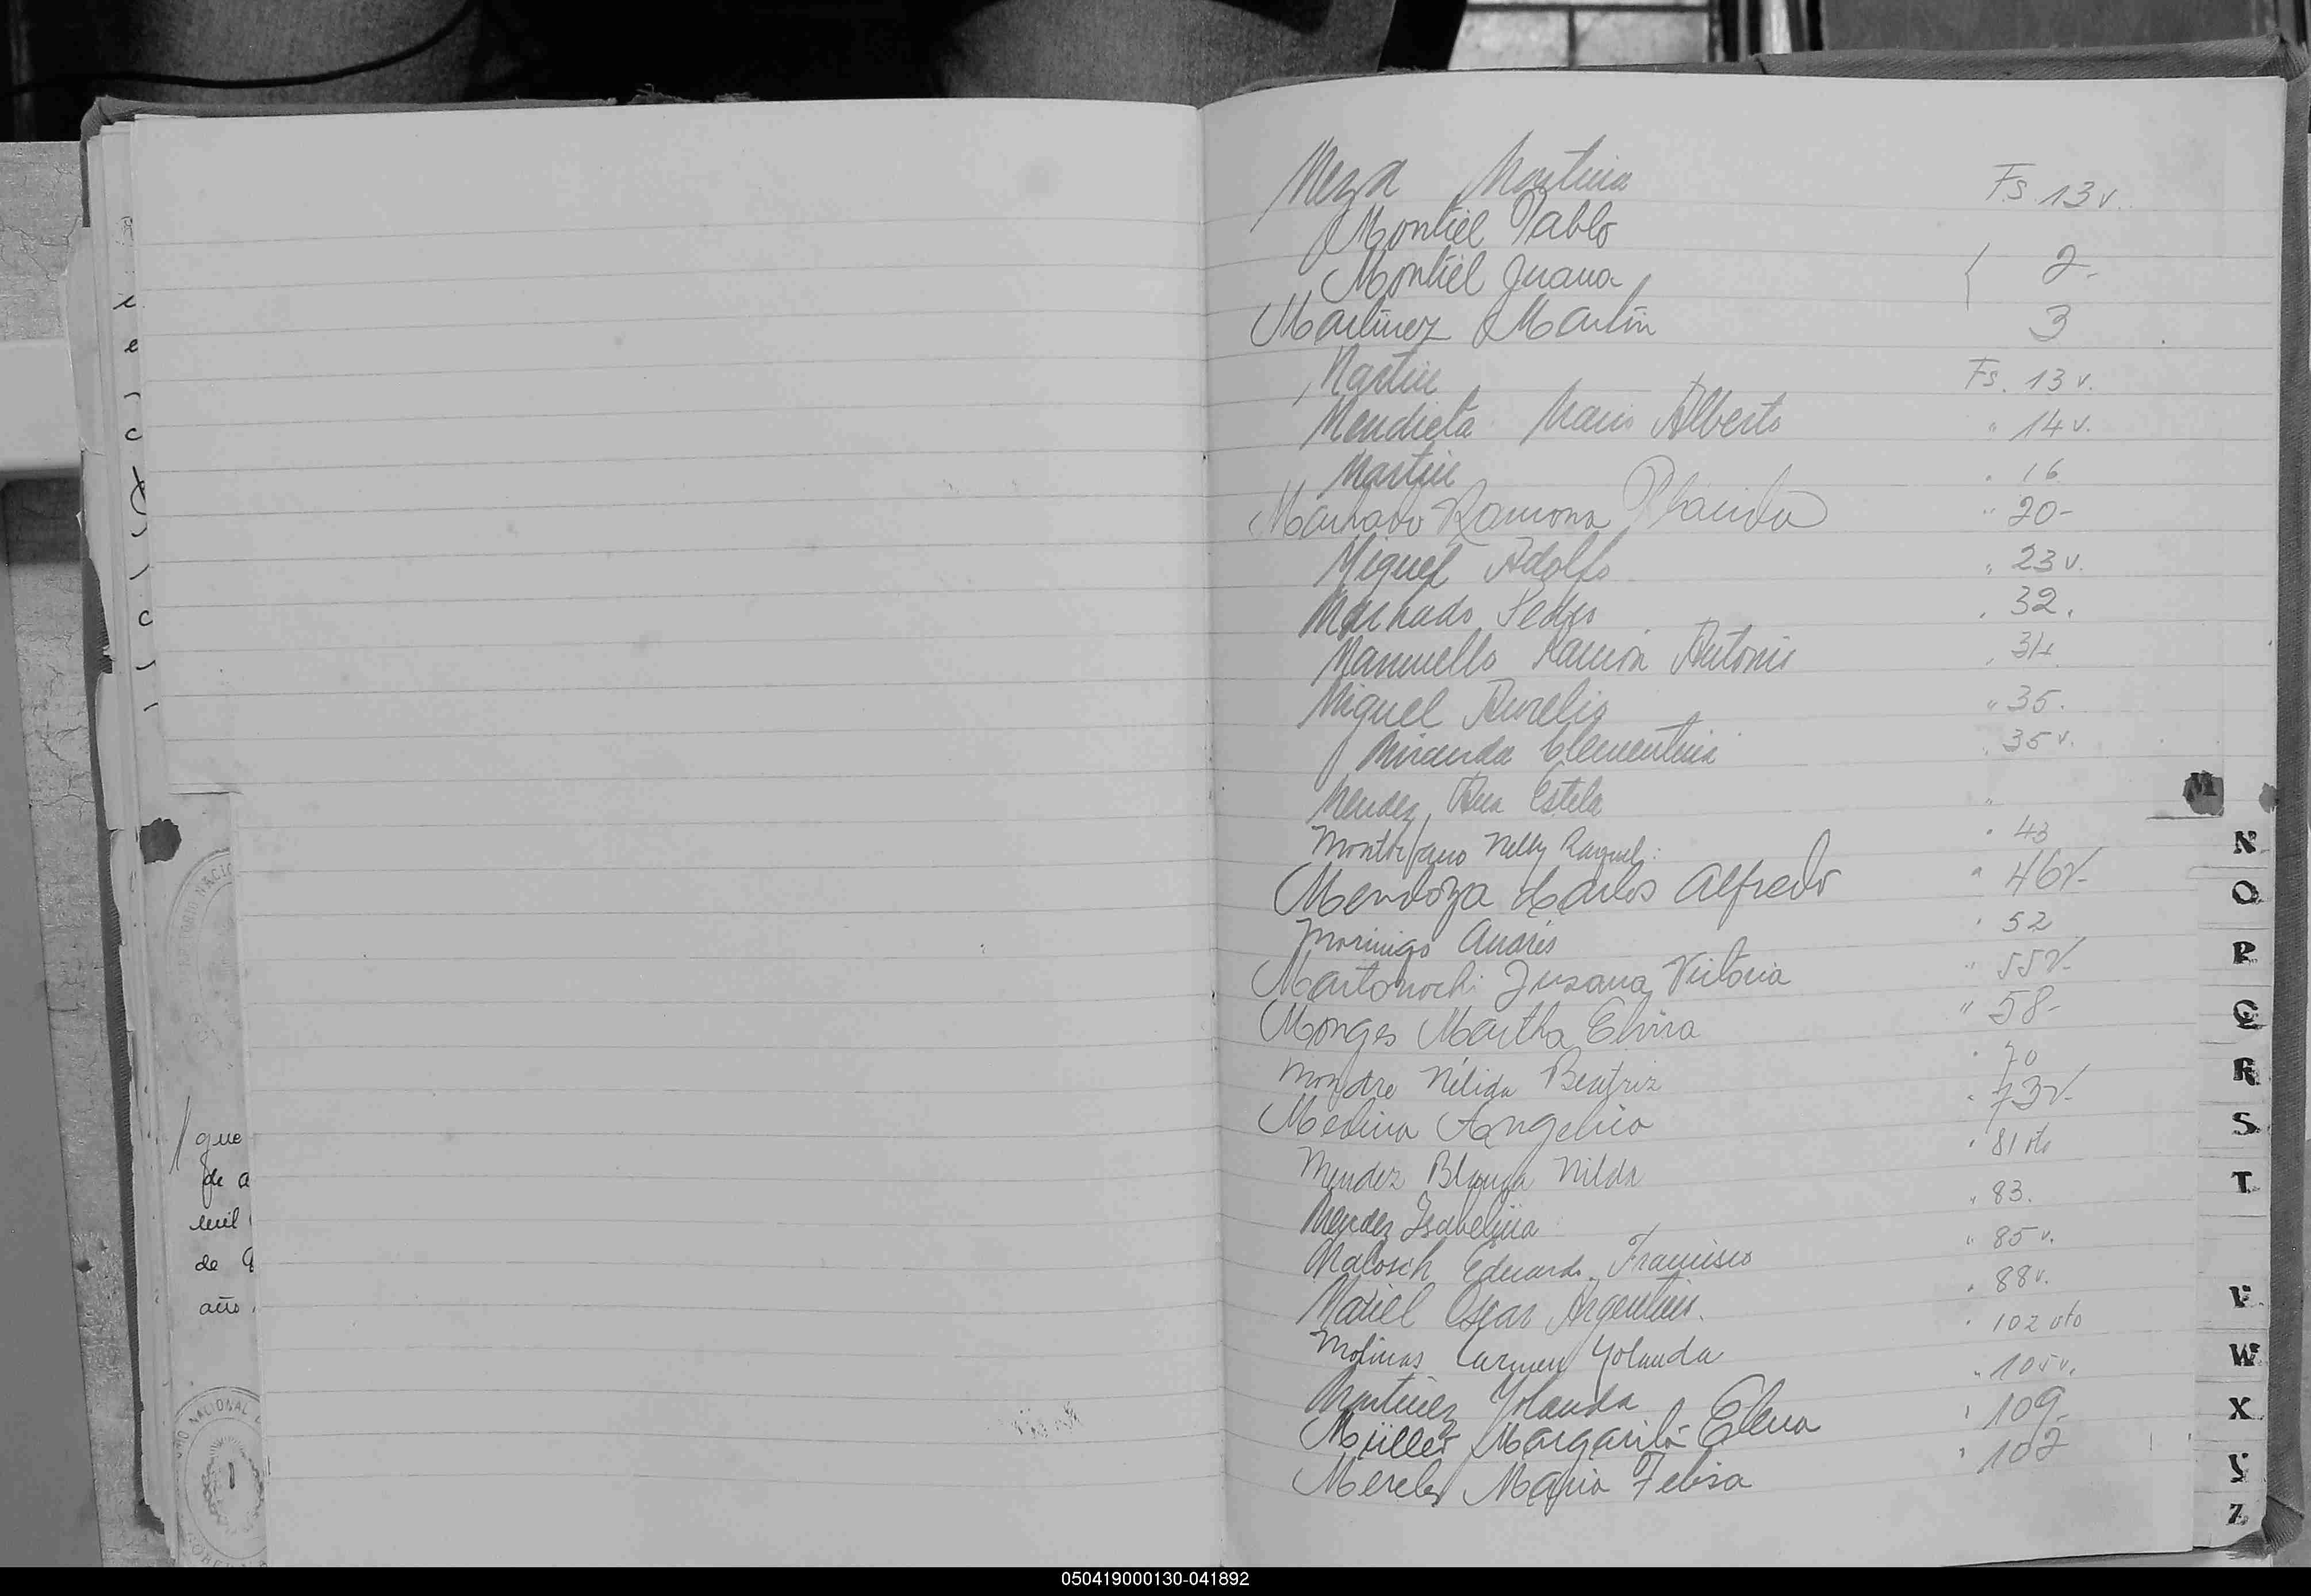 Meza Martina Fs. 13 v.
Montiel Pablo
Montiel Juana 2-
Martinez Martín 3
Martin Fs. 13 v.
Mendieta Mario Alberto " 14 v.
Martin " 16
Machado Ramona Placida " 20-
Miguel Adolfo " 23 v.
Machado Pedro " 32.
Mannuello Ramón Antonio " 34
Miguel Aurelio " 35.
Miranda Clementina " 35 v.
Mendez, Ana Estela "
Nelly Raquel " 43
Mendoza Carlos Alfredo " 46v-
Morinigo Andrés " 52
Susana Victoria " 55v-
Monges Martha Elvira " 58-
Nélida Beatriz " 70
Medina Angelica " 73v-
Mendez Blanca Nilda " 81 vto
Mendez Isabelina " 83.
Malosch Eduardo Francisco " 85 v.
Maciel Oscar Argentino. " 88 v.
Molinas Carmen Yolanda " 102 vto
Martinez Yolanda " 105 v.
Müller Margarita Elena " 109-
Mereles Maria Felisa " 102
M
N
O
P
Q
R
S
T
V
W
X
Y
Z
que
de a
mil
de
año
NACIONAL
050419000130-041892